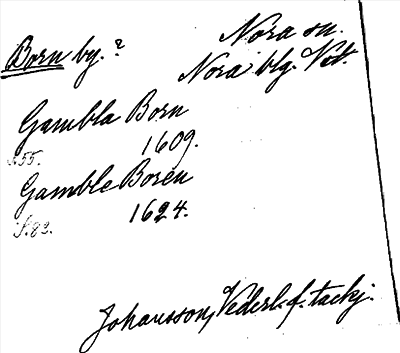 Born by.?
Nora sn.
Nora blg. Vst.
Gambla Born
1609.
s.55.
Gamble Boren
1624.
s.83.
Johansson, Vederl. f. tackj.